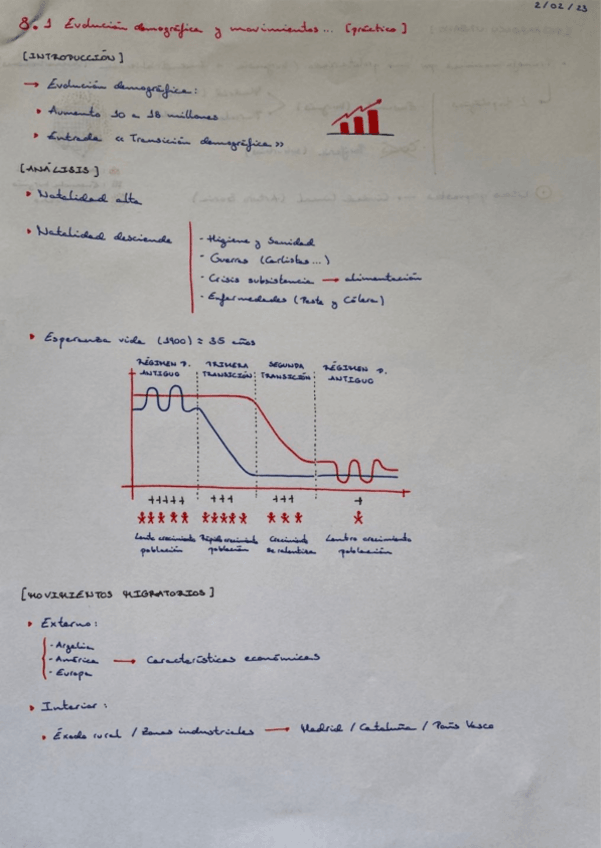 2/02/23
8.1 Evolución demográfica y movimientos... [práctico]
[INTRODUCCIÓN]
→ Evolución demográfica:
• Aumento 10 a 18 millones
• Entrada «Transición demográfica»
[ANÁLISIS]
• Natalidad alta
• Natalidad desciende
- Higiene y Sanidad
- Guerras (Carlistas...)
- Crisis subsistencia → alimentación
- Enfermedades (Peste y Cólera)
• Esperanza vida (1900) = 35 años
RÉGIMEN D. ANTIGUO
PRIMERA TRANSICIÓN
SEGUNDA TRANSICIÓN
RÉGIMEN D. ANTIGUO
+++++ +++ +++ +
Lento crecimiento población
Rápido crecimiento población
Crecimiento se ralentiza
Lento crecimiento población
[MOVIMIENTOS MIGRATORIOS]
• Externo:
- Argelia
- América → Características económicas
- Europa
• Interior:
• Éxodo rural / Zonas industriales → Madrid / Cataluña / País Vasco